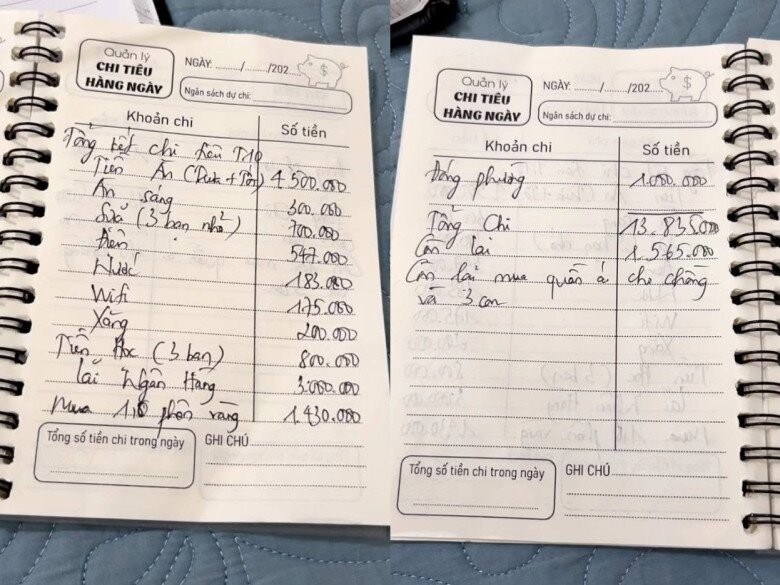 Quản lý
CHI TIÊU
HÀNG NGÀY
NGÀY: ......./......./202....
$
Ngân sách dự chi:
Khoản chi Số tiền
Tổng kết chi tiêu T10
Tiền Ăn (Trưa + Tối) 4.500.000
Ăn sáng 300.000
Sữa (3 bạn nhỏ) 700.000
Điện 547.000
Nước 183.000
Wifi 175.000
Xăng 200.000
Tiền Học (3 bạn) 800.000
lãi Ngân Hàng 3.000.000
Mua phân vàng 1.430.000
Tổng số tiền chi trong ngày
GHI CHÚ
Quản lý
CHI TIÊU
HÀNG NGÀY
NGÀY: ......./......./202....
$
Ngân sách dự chi:
Khoản chi Số tiền
Đóng phường 1.000.000
Tổng Chi 13.835.000
Còn lại 1.565.000
Còn lại mua quần á cho chồng
và 3 con
Tổng số tiền chi trong ngày
GHI CHÚ